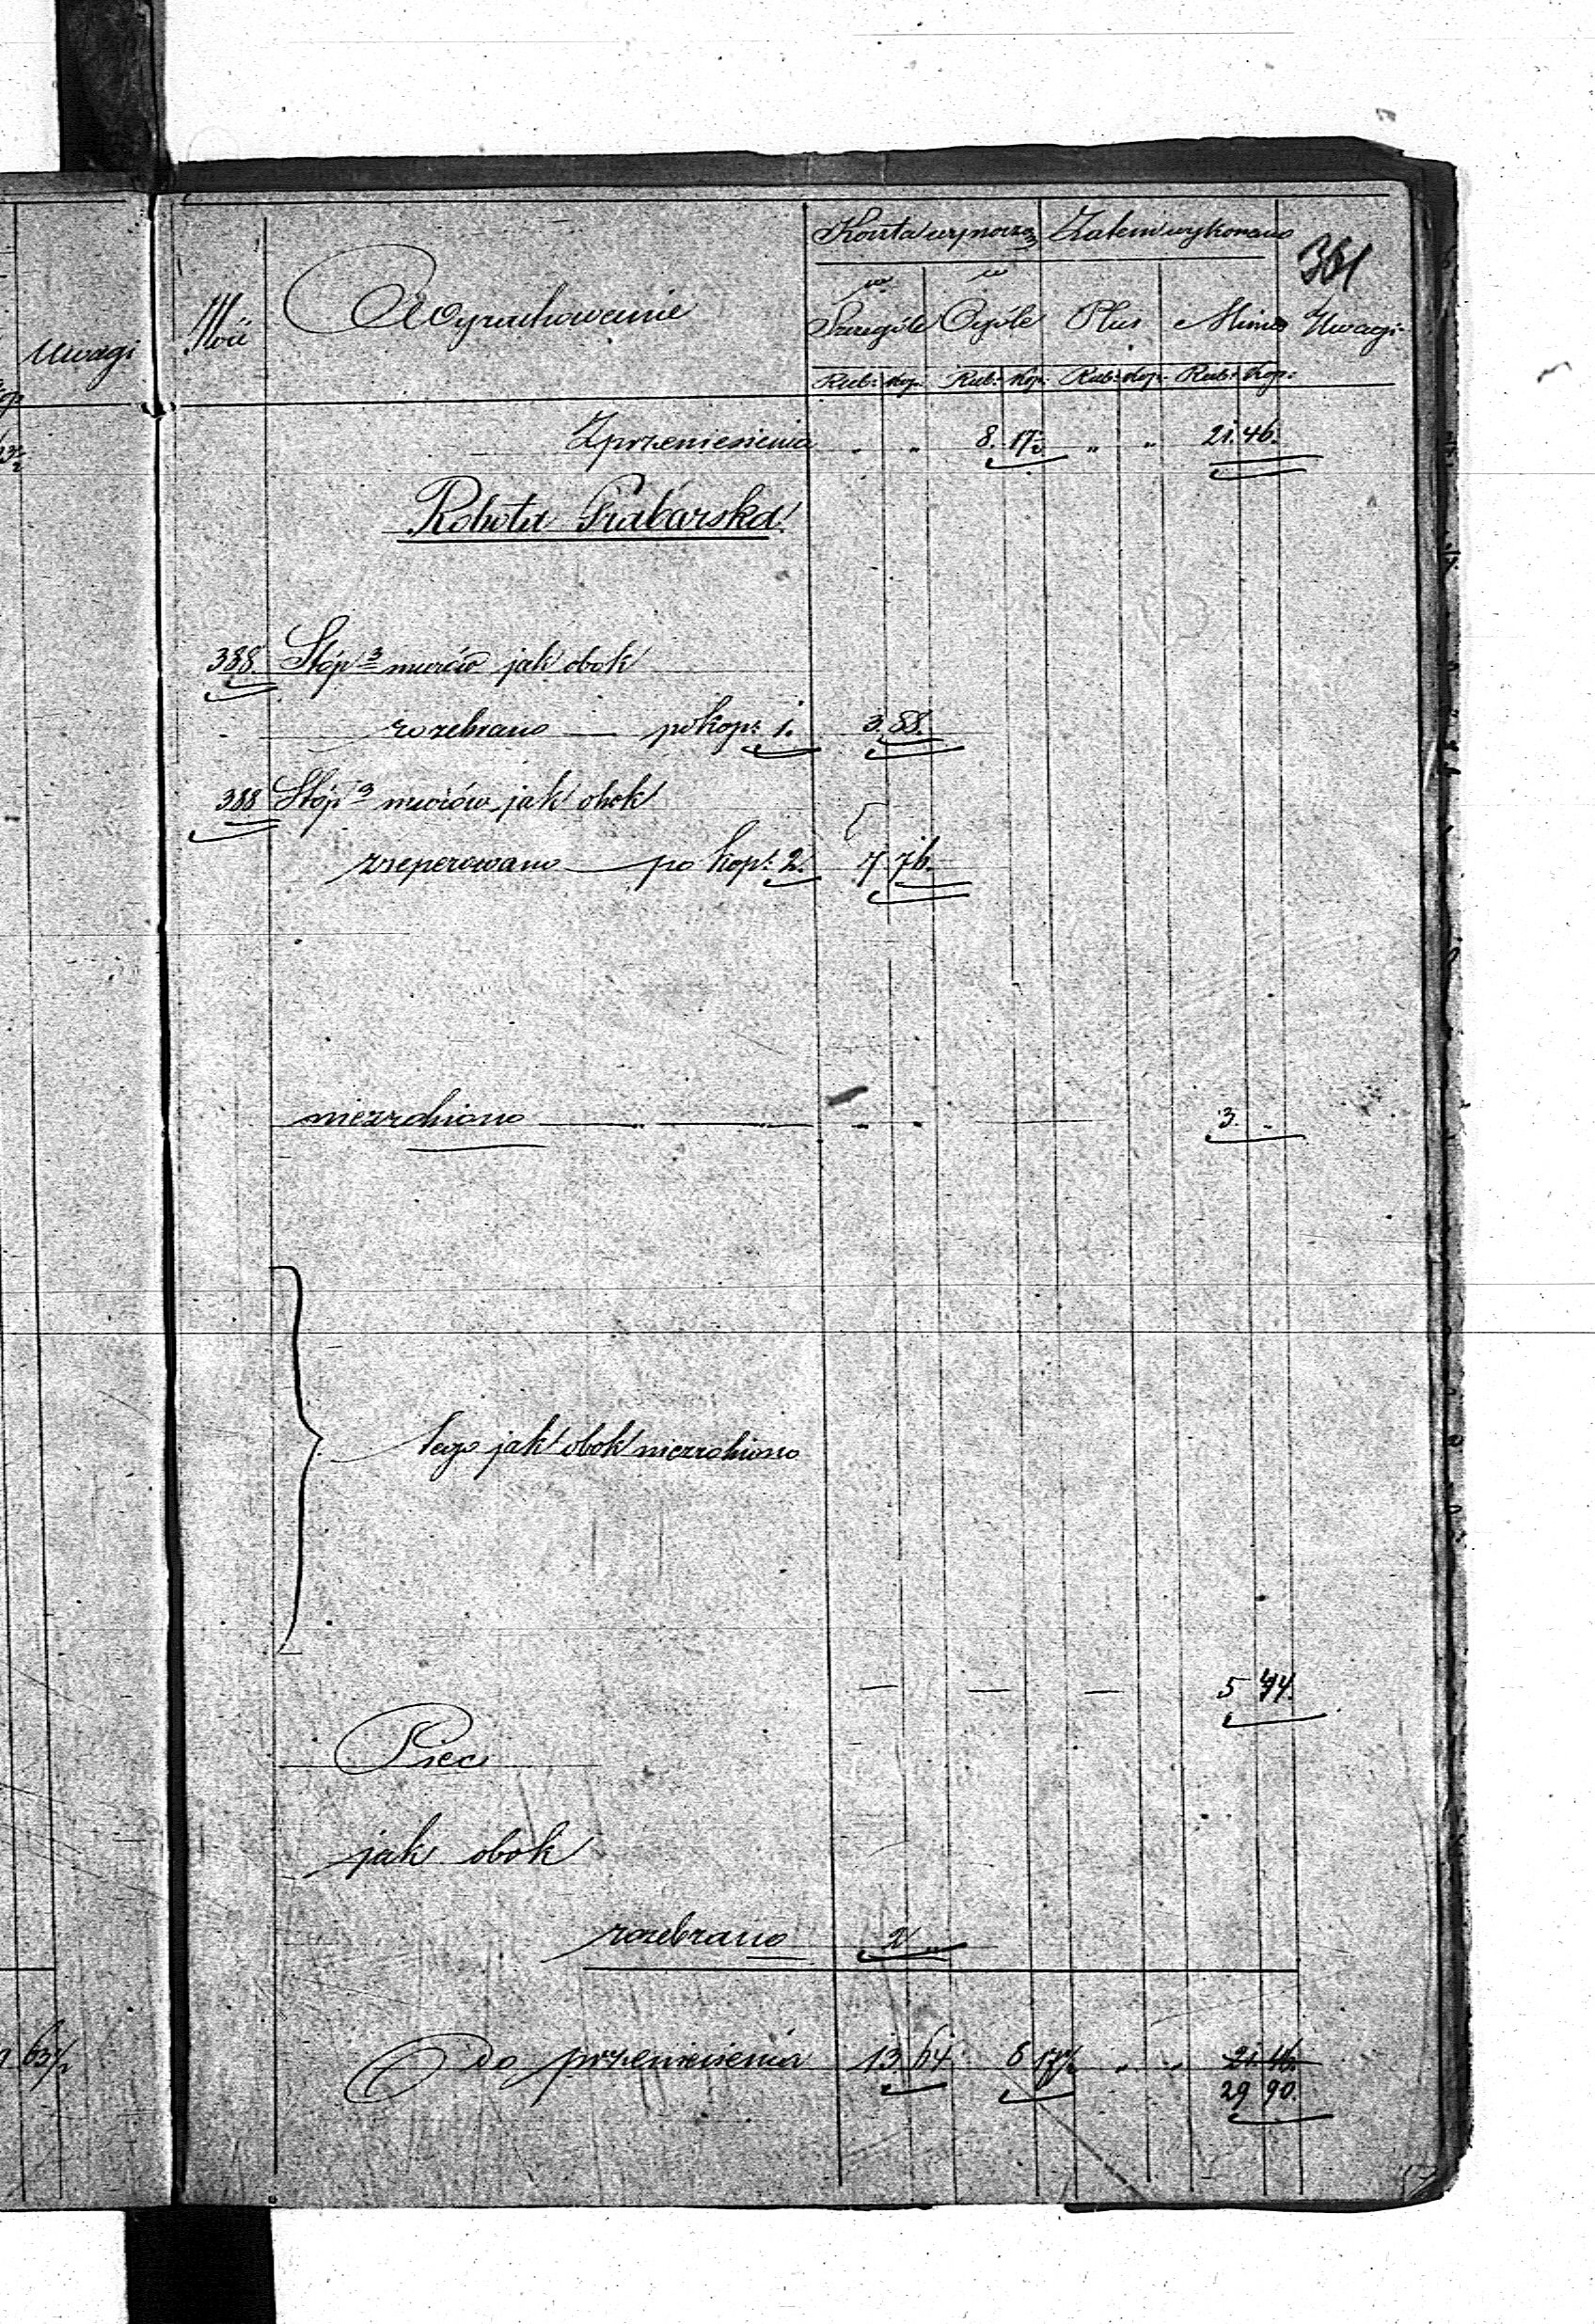 Uwagi
Koszta wynoszą Zatem wykonano
361
Ilość Wyrachowanie w Szczególe w Ogóle Plus Minus Uwagi
Rub: kop. Rub: kop. Rub: kop. Rub: kop.
Z przeniesienia " " 8. 17½ " " 21. 46.
Robota Grabarska
388. Stóp 3 murów jak obok
rozebrano — po kop: 1. 3. 88.
388 Stóp 3 murów jak obok
zreperowano — po kop: 2. 7 76.
niezrobiono 3. "
tego jak obok niezrobiono
— — — 5 44.
Piec
jak obok
rozebrano 2 "
63½ Do przeniesienia 13 64. 8 17½ " " 21 46.
29 90.